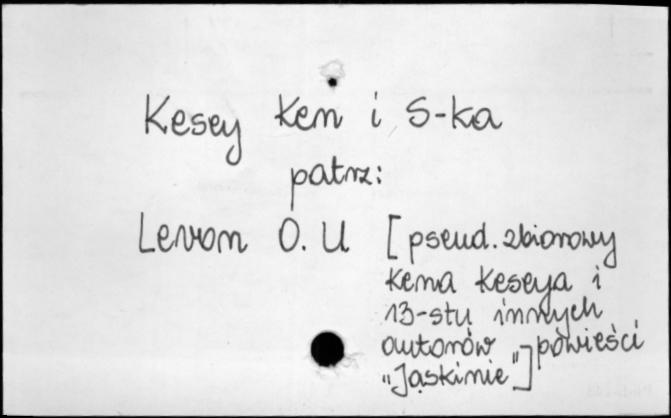 Kesey Ken i S-ka
patrz:
Levon O. U [pseud. zbiorowy
Kena Keseya i
13-stu innych
autorów powieści
„Jaskinie"]